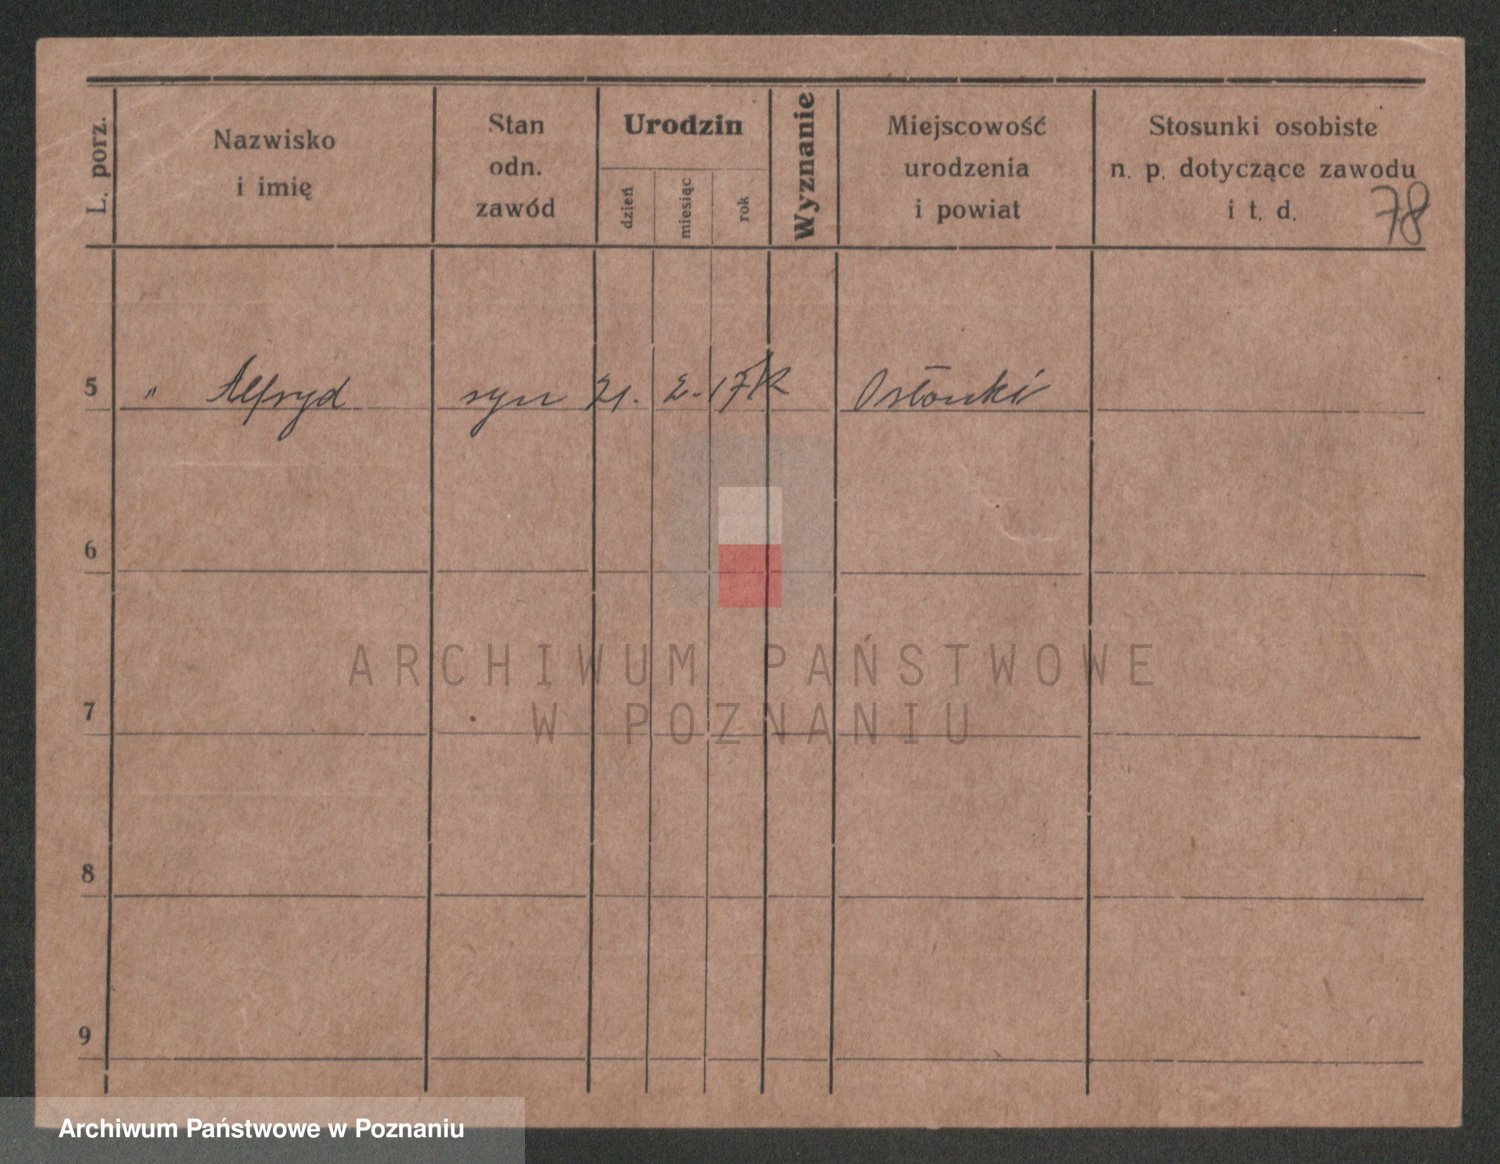 L. porz.
Nazwisko
i imię
Stan
odn.
zawód
Urodzin
dzień
miesiąc
rok
Wyznanie
Miejscowość
urodzenia
i powiat
Stosunki osobiste
n. p. dotyczące zawodu
i t. d.
78
5 " Alfryd syn 21. 2. 17 k Osłonki
6
7
8
9
ARCHIWUM PAŃSTWOWE
W POZNANIU
Archiwum Państwowe w Poznaniu